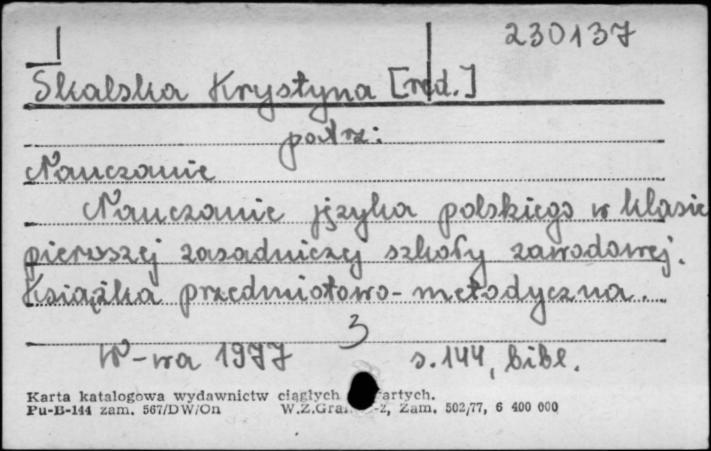 230137
Skalska Krystyna [red.]
patrz:
Nauczanie
Nauczanie języka polskiego w klasie
pierwszej zasadniczej szkoły zawodowej.
Książka przedmiotowo-metodyczna.
3
W-wa 1977 s. 144, bibl.
Karta katalogowa wydawnictw ciągłych
Pu-B-144 zam. 567/DW/On W.Z.Graf. Zam. 502/77, 6 400 000